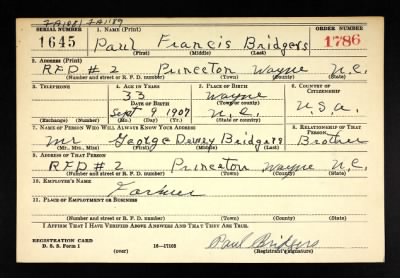 SERIAL NUMBER 1. NAME (Print) ORDER NUMBER
1645 Paul Francis Bridgers 1786
(First) (Middle) (Last)
2. ADDRESS (Print)
RFD # 2 Princeton Wayne N.C.
(Number and street or R. F. D. number) (Town) (County) (State)
3. TELEPHONE 4. AGE IN YEARS 5. PLACE OF BIRTH 6. COUNTRY OF CITIZENSHIP
33 Wayne
DATE OF BIRTH (Town or county)
Sept 9 1907 N.C. U.S.A.
(Exchange) (Number) (Mo.) (Day) (Yr.) (State or country)
7. NAME OF PERSON WHO WILL ALWAYS KNOW YOUR ADDRESS 8. RELATIONSHIP OF THAT PERSON
Mr George Dewey Bridgers Brother
(Mr., Mrs., Miss) (First) (Middle) (Last)
9. ADDRESS OF THAT PERSON
RFD # 2 Princeton Wayne N.C.
(Number and street or R. F. D. number) (Town) (County) (State)
10. EMPLOYER'S NAME
Farmer
11. PLACE OF EMPLOYMENT OR BUSINESS
(Number and street or R. F. D. number) (Town) (County) (State)
I AFFIRM THAT I HAVE VERIFIED ABOVE ANSWERS AND THAT THEY ARE TRUE.
REGISTRATION CARD
D. S. S. Form 1 (over) 16—17105 Paul Bridgers
(Registrant's signature)